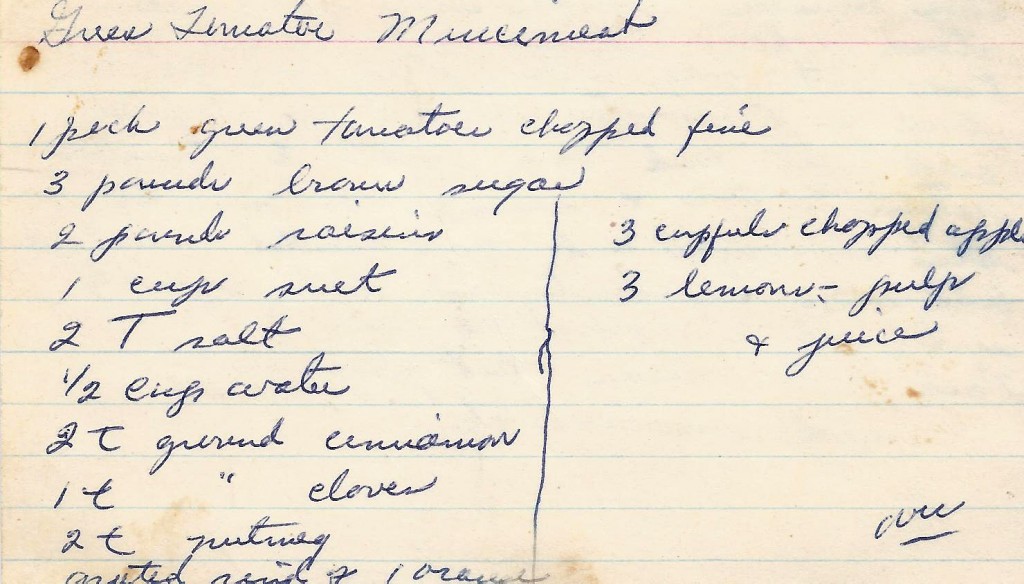 Green Tomatoe Mincemeat
1 peck green tomatoes chopped fine
3 pounds brown sugar
2 pounds raisins
1 cup suet
2 T salt
1/2 cup water
2 t ground cinnamon
1 t " cloves
2 t nutmeg
grated rind of 1 orange
3 cupfuls chopped apple
3 lemons - pulp
& juice
over